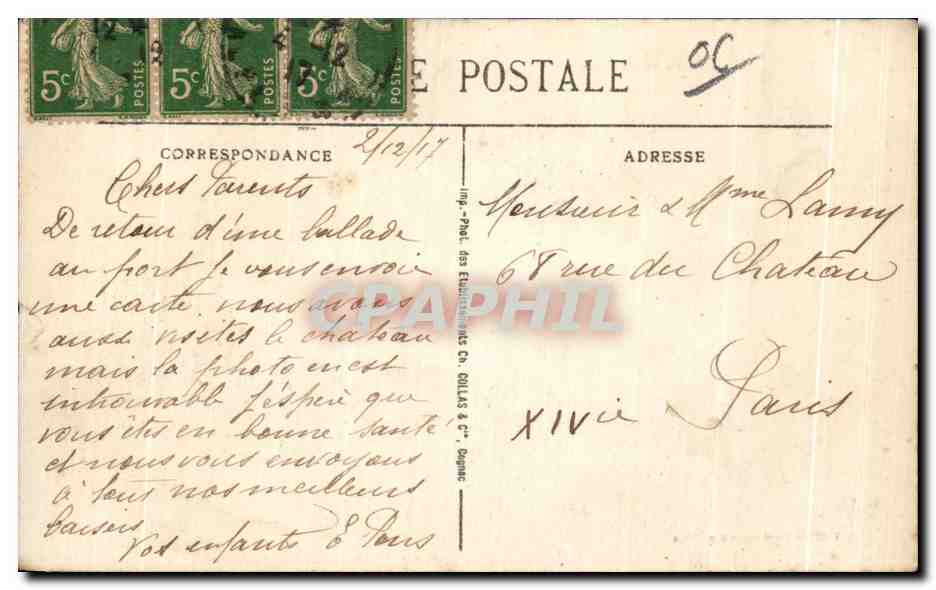 5c POSTES 5c POSTES 5c POSTES
E POSTALE
OC
CORRESPONDANCE
2/12/17
Chers Parents
De retour d'une ballade
au port je vous envoie
une carte nous avons
aussi visités le chateau
mais la photo en est
introuvable J'éspère que
vous êtes en bonne santé
et nous vous envoyons
à tous nos meilleurs
baisers
Vos enfants E Pons
Imp.-Phot. des Etablissements Ch. COLLAS & Cie, Cognac
ADRESSE
Monsieur & Mme Lamy
68 rue du Chateau
Paris
XIVie
CPAPHIL